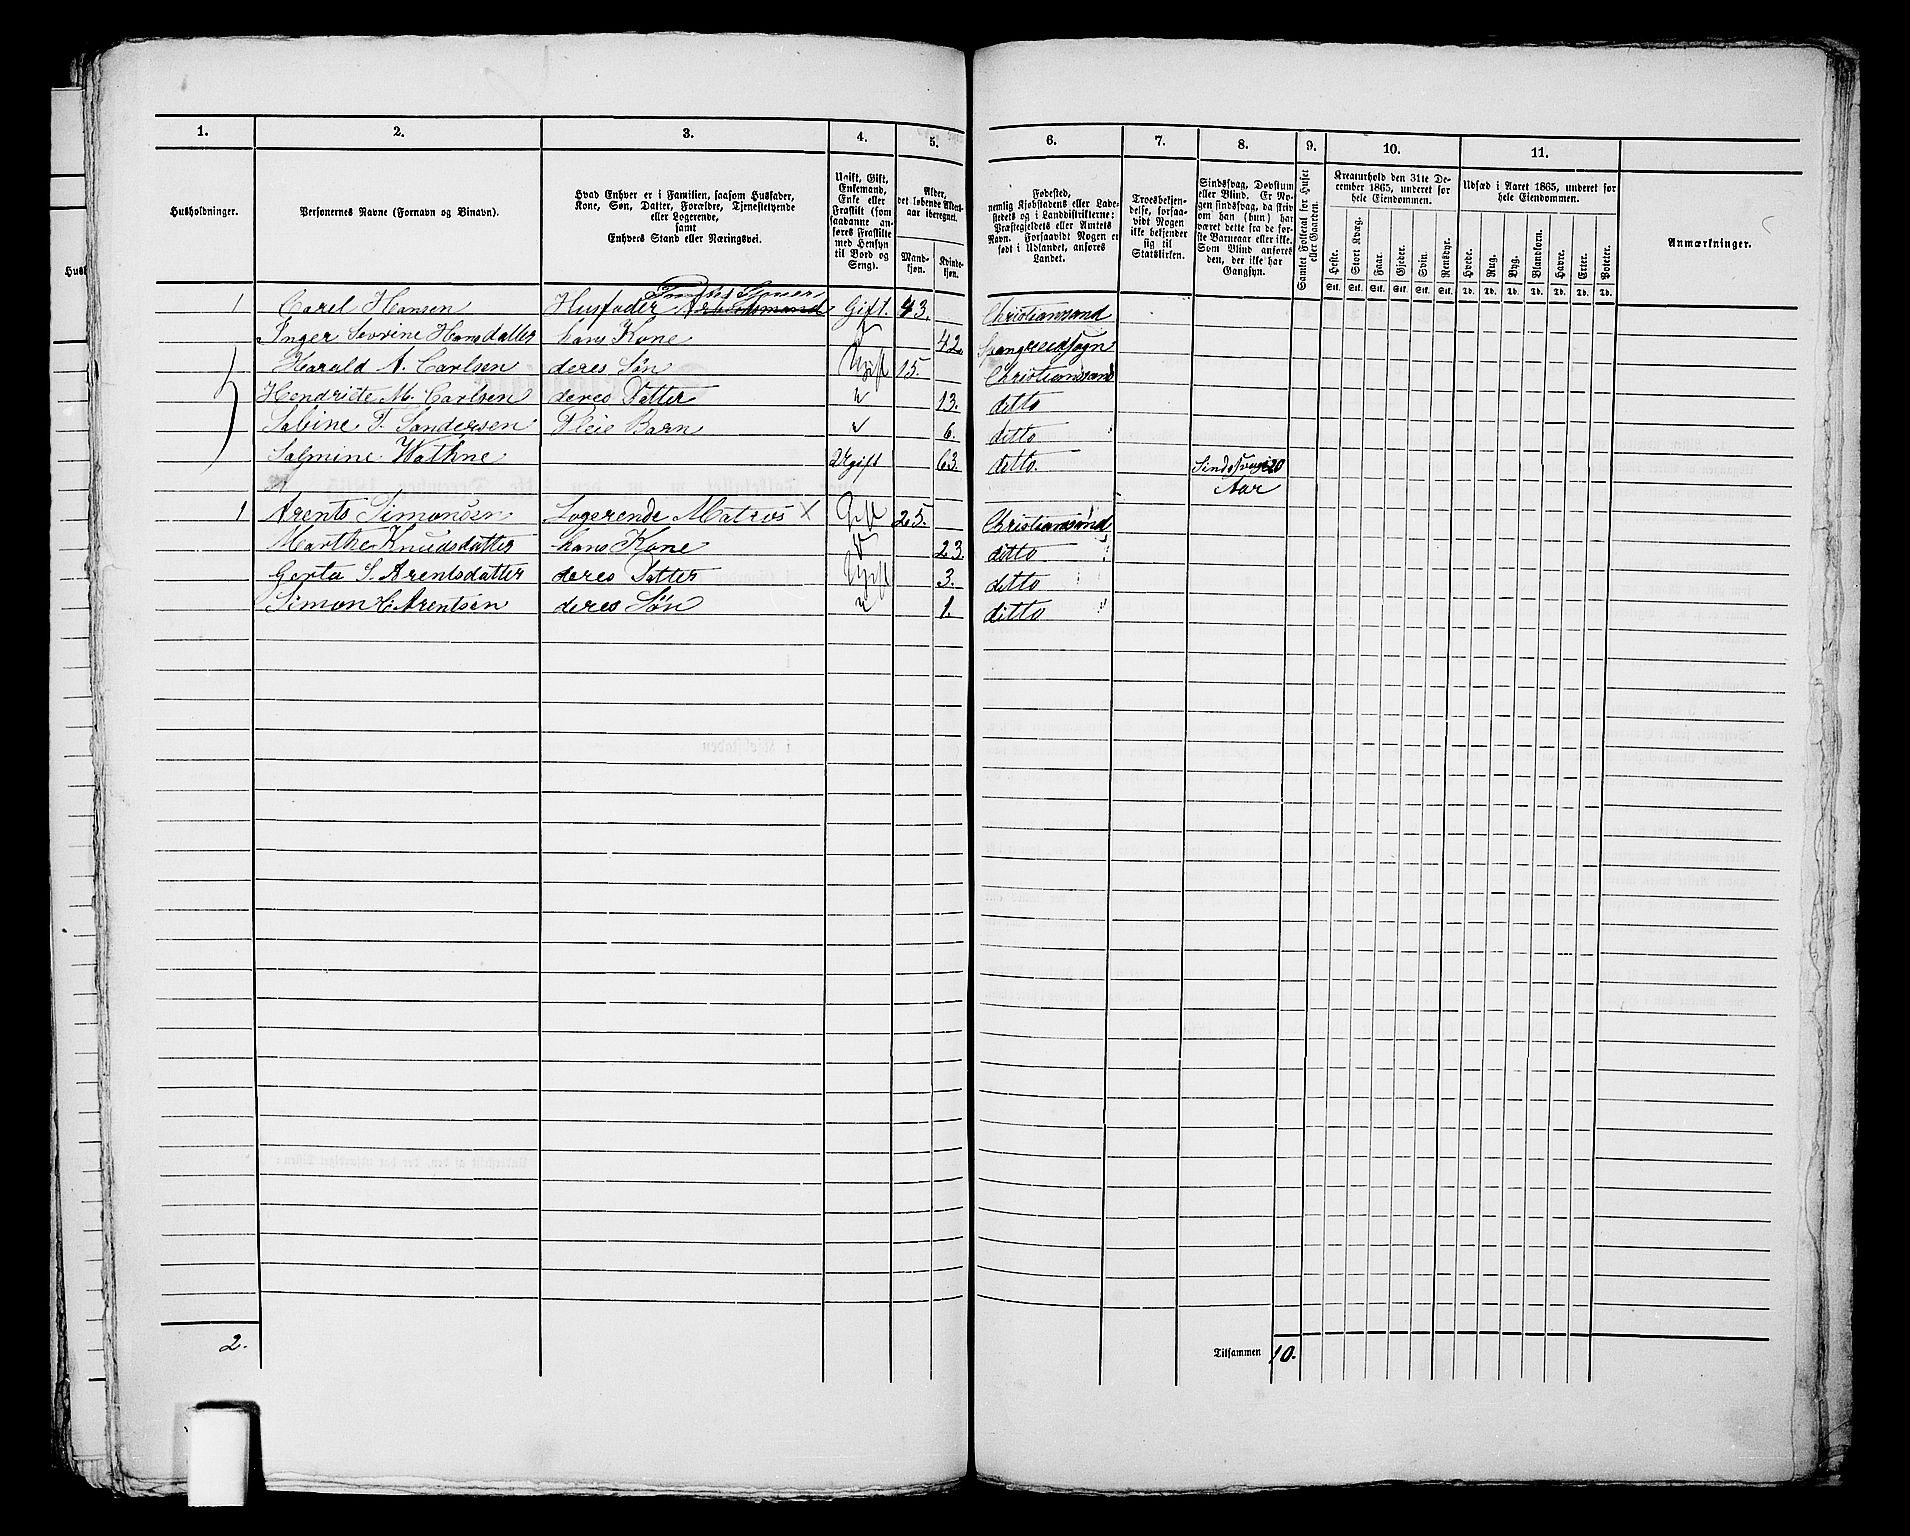 1. 2. 3. 4. 5. 6. 7. 8. 9. 10. 11.
Husholdninger.
Personernes Navne (Fornavn og Binavn).
Hvad Enhver er i Familien, saasom Husfader,
Kone, Søn, Datter, Forældre, Tjenestetyende
eller Logerende,
samt
Enhvers Stand eller Næringsvei.
Ugift, Gift,
Enkemand,
Enke eller
Fraskilt (som
saadanne an-
føres Fraskilte
med Hensyn
til Bord og
Seng).
Alder,
det løbende Alders-
aar iberegnet.
Mand-
kjøn.
Kvinde-
kjøn.
Fødested,
nemlig Kjøbstadens eller Lade-
stedets og i Landdistrikterne:
Præstegjeldets eller Amtets
Navn. Forsaavidt Nogen er
født i Udlandet, anføres
Landet.
Troesbekjen-
delse, forsaa-
vidt Nogen
ikke bekjender
sig til
Statskirken.
Sindssvag, Døvstum
eller Blind. Er No-
gen sindssvag, da skriv
om han (hun) har
været dette fra de før-
ste Barneaar eller ikke.
Som Blind anføres
den, der ikke har
Gangsyn.
Samlet Folketal for Huset
eller Gaarden.
Kreaturhold den 31te De-
cember 1865, underet for
hele Eiendommen.
Heste. Stort Kvæg. Faar. Gjeder. Svin. Rensdyr.
Stk. Stk. Stk. Stk. Stk. Stk.
Udsæd i Aaret 1865, underet for
hele Eiendommen.
Hvede. Rug. Byg. Blandkorn. Havre. Erter. Poteter.
Td. Td. Td. Td. Td. Td. Td.
Anmærkninger.
1 Carel Hansen Husfader Arbeidsmand Gift. 43. Christiansand
Inger Sevrine Hansdatter hans Kone 42. Sognn
Harald A. Carlsen deres Søn Ugift 15. Christiansand
Hendriete M. Carlsen deres Datter " 13. ditto
Sabine T. Sandersen Pleie Barn " 6. ditto
Salmine Wathne Ugift 63. ditto. Sindssvag i 20
Aar
1 Arents Simonsen Logerende Matros X Gift 25. Christiansand
Marthe Knudsdatter hans Kone " 23. ditto "
Gerta S. Arentsdatter deres Datter Ugift 3. ditto "
Simon H. Arentsen deres Søn " 1. ditto "
2.
Tilsammen 10.